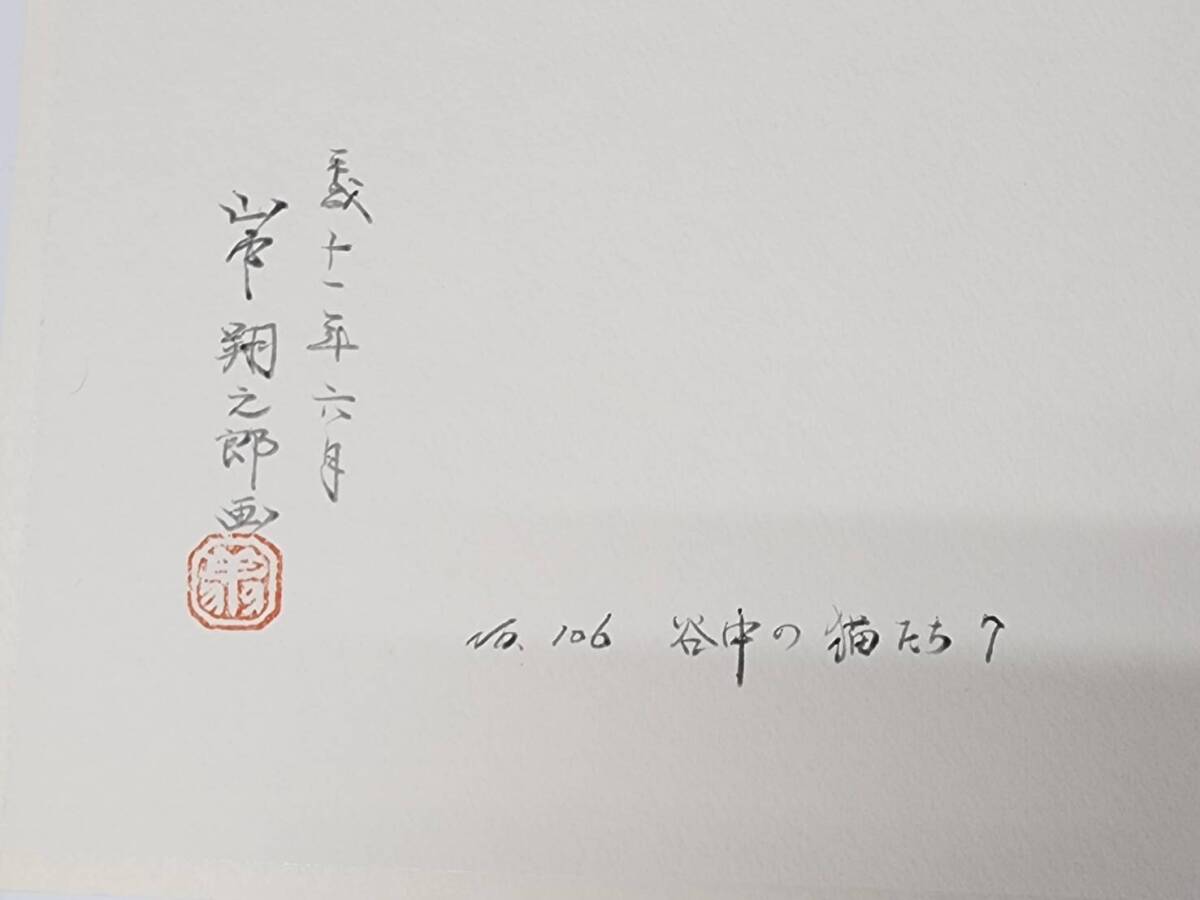 平成十一年六月
山中翔之郎画
No. 106 谷中の猫たち 7